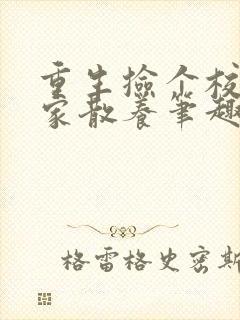 重生捡个校
家散养笔趣
格雷格史密斯